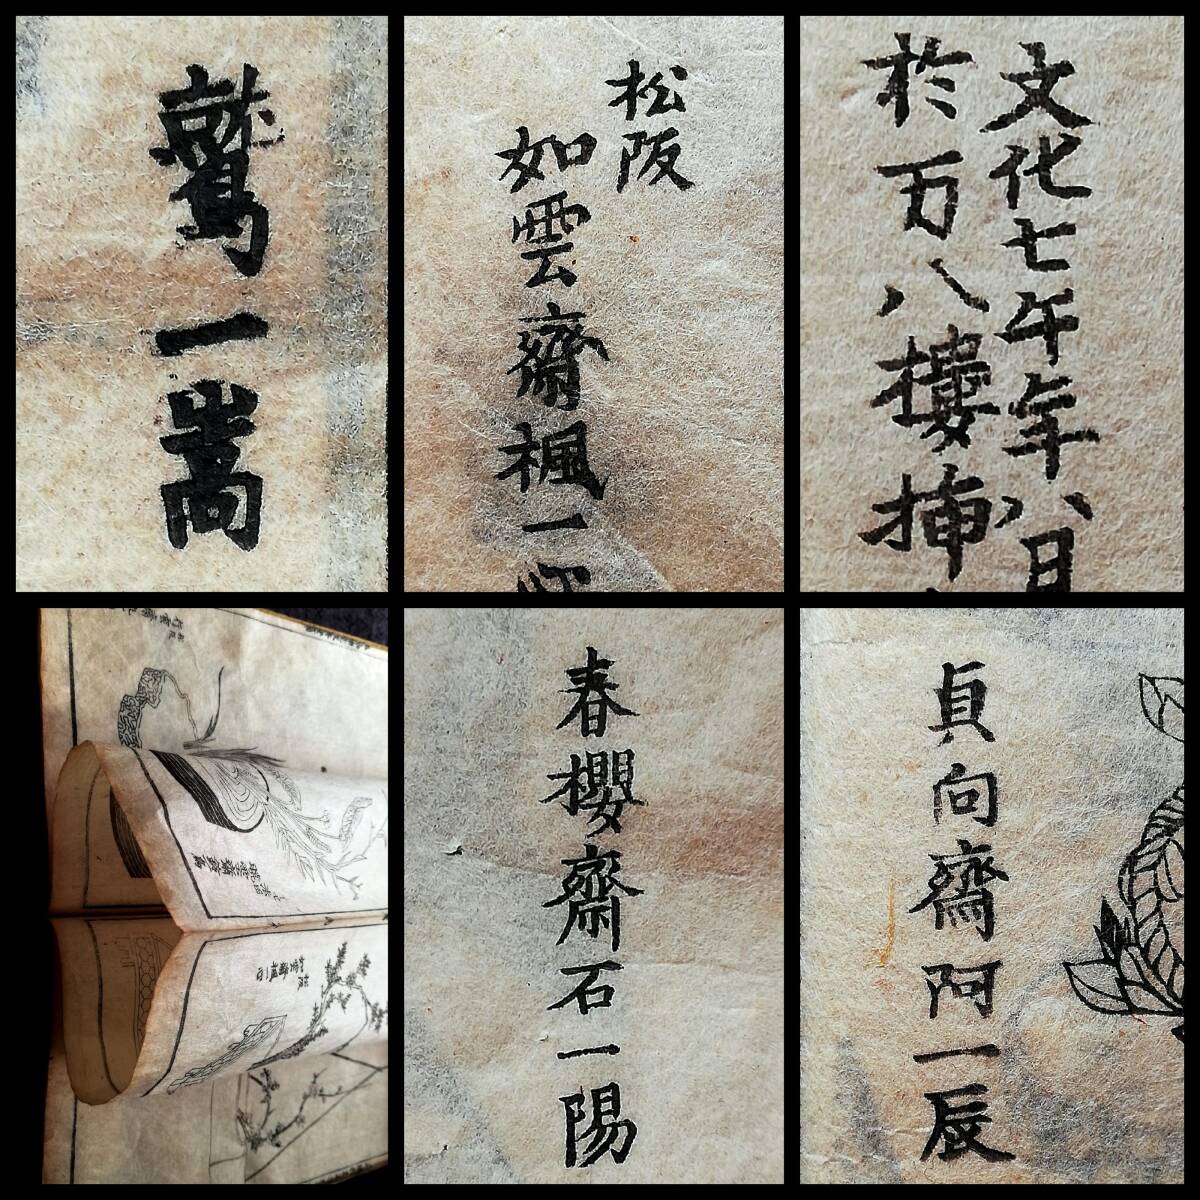 鷲一嵩
松阪
如雲齋楓一
文化七午年八月
於万八樓挿
春櫻齋石一陽
貞向齋阿一辰